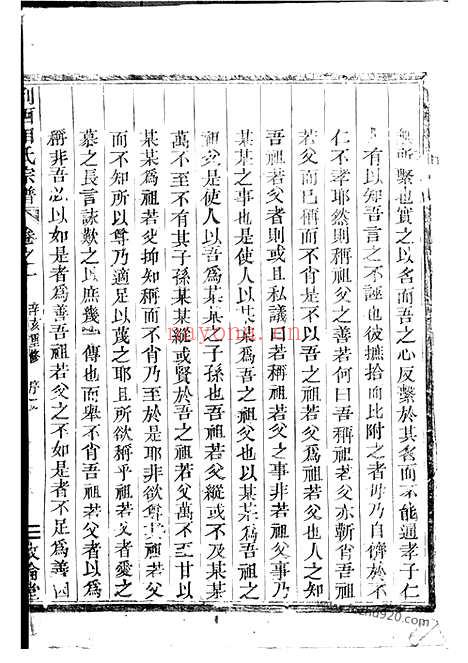 繫也實之以名而吾之心反繫於其名而不能通孝子仁
人有以知吾言之不誣也彼摭拾而比附之者毋乃自儕於不
仁不孝耶然則稱祖父之善若何曰吾稱祖若父亦靳肖吾祖
若父而已稱而不肖是不以吾祖若父為祖若父使人之知
吾祖若父者則或且私議若若稱祖若父之事非若祖若父事乃
某某之事也是使人以某某為吾之祖父也以某某為吾祖之
祖若父是使人以吾為某某子孫也吾祖若父縱或
萬不至不有其子孫某某縱或賢於吾之祖若父萬不至甘以
某某為祖若父抑知稱而不肖乃至於是耶非欲尊吾祖若父
而不知所以尊乃適足以蔑之耶且所欲稱乎祖若父者愛之
慕之長言詠歎之以庶幾一傳也而舉不肖吾祖若父者以為
稱非吾必以如是者為善吾祖若父之不如是者不足為善因
西氏宗譜 卷之一 辛亥重修 序
敦倫堂
nayona.cn
f.shuge920.com